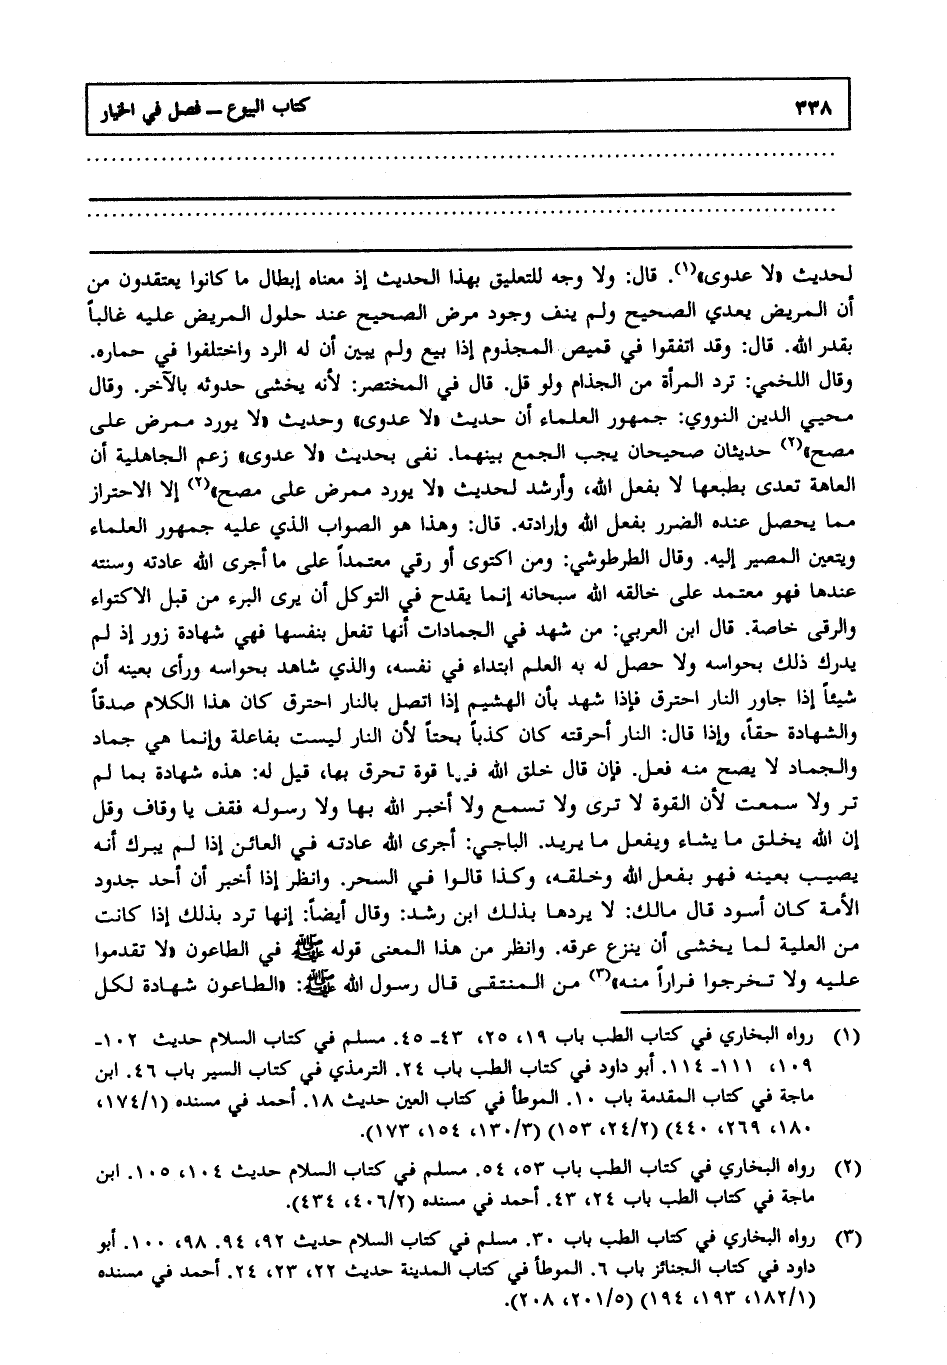 ٣٣٨ كتاب البيوع ــ فصل في الخيار
لحديث «لا عدوى»(١). قال: ولا وجه للتعليق بهذا الحديث إذ معناه إبطال ما كانوا يعتقدون من
أن المريض يعدي الصحيح ولم ينف وجود مرض الصحيح عند حلول المريض عليه غالباً
بقدر الله. قال: وقد اتفقوا في قميص المجذوم إذا بيع ولم يبين أن له الرد واختلفوا في حماره.
وقال اللخمي: ترد المرأة من الجذام ولو قل. قال في المختصر: لأنه يخشى حدوثه بالآخر. وقال
محيي الدين النووي: جمهور العلماء أن حديث «لا عدوى» وحديث «لا يورد ممرض على
مصح»(٢) حديثان صحيحان يجب الجمع بينهما. نفى بحديث «لا عدوى» زعم الجاهلية أن
العاهة تعدى بطبعها لا بفعل الله، وأرشد لحديث «لا يورد ممرض على مصح»(٢) إلا الاحتراز
مما يحصل عنده الضرر بفعل الله وإرادته. قال: وهذا هو الصواب الذي عليه جمهور العلماء
ويتعين المصير إليه. وقال الطرطوشي: ومن اكتوى أو رقي معتمداً على ما أجرى الله عادته وسنته
عندها فهو معتمد على خالقه الله سبحانه إنما يقدح في التوكل أن يرى البرء من قبل الاكتواء
والرقى خاصة. قال ابن العربي: من شهد في الجمادات أنها تفعل بنفسها فهي شهادة زور إذ لم
يدرك ذلك بحواسه ولا حصل له به العلم ابتداء في نفسه، والذي شاهد بحواسه ورأى بعينه أن
شيئاً إذا جاور النار احترق فإذا شهد بأن الهشيم إذا اتصل بالنار احترق كان هذا الكلام صدقاً
والشهادة حقاً، وإذا قال: النار أحرقته كان كذباً بحتاً لأن النار ليست بفاعلة وإنما هي جماد
والجماد لا يصح منه فعل. فإن قال خلق الله فيها قوة تحرق بها، قيل له: هذه شهادة بما لم
تر ولا سمعت لأن القوة لا ترى ولا تسمع ولا أخبر الله بها ولا رسوله فقف يا وقاف وقل
إن الله يخلق ما يشاء ويفعل ما يريد. الباجي: أجرى الله عادته في العائن إذا لم يبرك أنه
يصيب بعينه فهو بفعل الله وخلقه، وكذا قالوا في السحر. وانظر إذا أخبر أن أحد جدود
الأمة كان أسود قال مالك: لا يردها بذلك ابن رشد: وقال أيضاً: إنها ترد بذلك إذا كانت
من العلية لما يخشى أن ينزع عرقه. وانظر من هذا المعنى قوله ﷺ في الطاعون «لا تقدموا
عليه ولا تخرجوا فراراً منه»(٣) من المنتقى قال رسول الله ﷺ: «الطاعون شهادة لكل
(١) رواه البخاري في كتاب الطب باب ١٩، ٢٥، ٤٣ــ ٤٥. مسلم في كتاب السلام حديث ١٠٢ــ
١٠٩، ١١١ــ ١١٤. أبو داود في كتاب الطب باب ٢٤. الترمذي في كتاب السير باب ٤٦. ابن
ماجة في كتاب المقدمة باب ١٠. الموطأ في كتاب العين حديث ١٨. أحمد في مسنده (١/١٧٤،
١٨٠، ٢٦٩، ٤٤٠) (٢/٢٤، ١٥٣) (٣/١٣٠، ١٥٤، ١٧٣).
(٢) رواه البخاري في كتاب الطب باب ٥٣، ٥٤. مسلم في كتاب السلام حديث ١٠٤، ١٠٥. ابن
ماجة في كتاب الطب باب ٢٤، ٤٣. أحمد في مسنده (٢/٤٠٦، ٤٣٤).
(٣) رواه البخاري في كتاب الطب باب ٣٠. مسلم في كتاب السلام حديث ٩٢، ٩٤. ٩٨، ١٠٠. أبو
داود في كتاب الجنائز باب ٦. الموطأ في كتاب المدينة حديث ٢٢، ٢٣، ٢٤. أحمد في مسنده
(١/١٨٢، ١٩٣، ١٩٤) (٥/٢٠١، ٢٠٨).